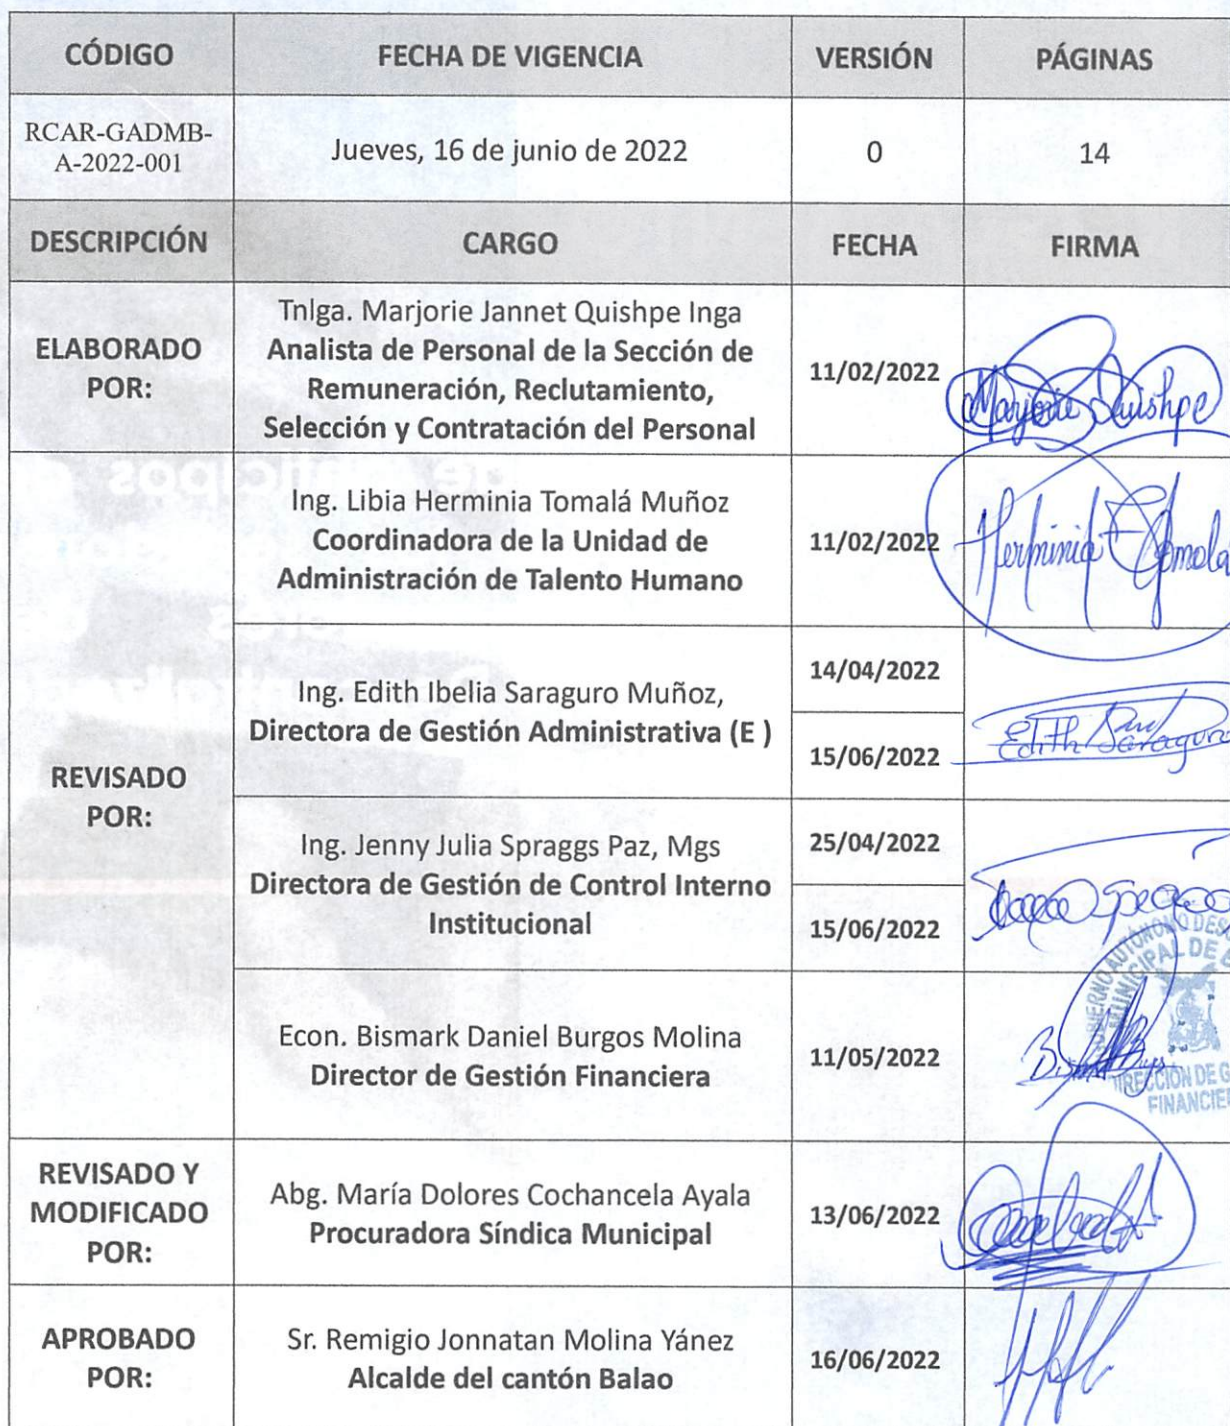 CÓDIGO FECHA DE VIGENCIA VERSIÓN PÁGINAS
RCAR-GADMB-
A-2022-001
Jueves, 16 de junio de 2022 0 14
DESCRIPCIÓN CARGO FECHA FIRMA
ELABORADO
POR:
Tnlga. Marjorie Jannet Quishpe Inga
Analista de Personal de la Sección de
Remuneración, Reclutamiento,
Selección y Contratación del Personal
11/02/2022
Marjorie Quishpe
REVISADO
POR:
Ing. Libia Herminia Tomalá Muñoz
Coordinadora de la Unidad de
Administración de Talento Humano
11/02/2022
Herminia Tomalá
Ing. Edith Ibelia Saraguro Muñoz,
Directora de Gestión Administrativa (E )
14/04/2022
15/06/2022
Edith Saraguro
Ing. Jenny Julia Spraggs Paz, Mgs
Directora de Gestión de Control Interno
Institucional
25/04/2022
15/06/2022
Econ. Bismark Daniel Burgos Molina
Director de Gestión Financiera
11/05/2022
REVISADO Y
MODIFICADO
POR:
Abg. María Dolores Cochancela Ayala
Procuradora Síndica Municipal
13/06/2022
APROBADO
POR:
Sr. Remigio Jonnatan Molina Yánez
Alcalde del cantón Balao
16/06/2022